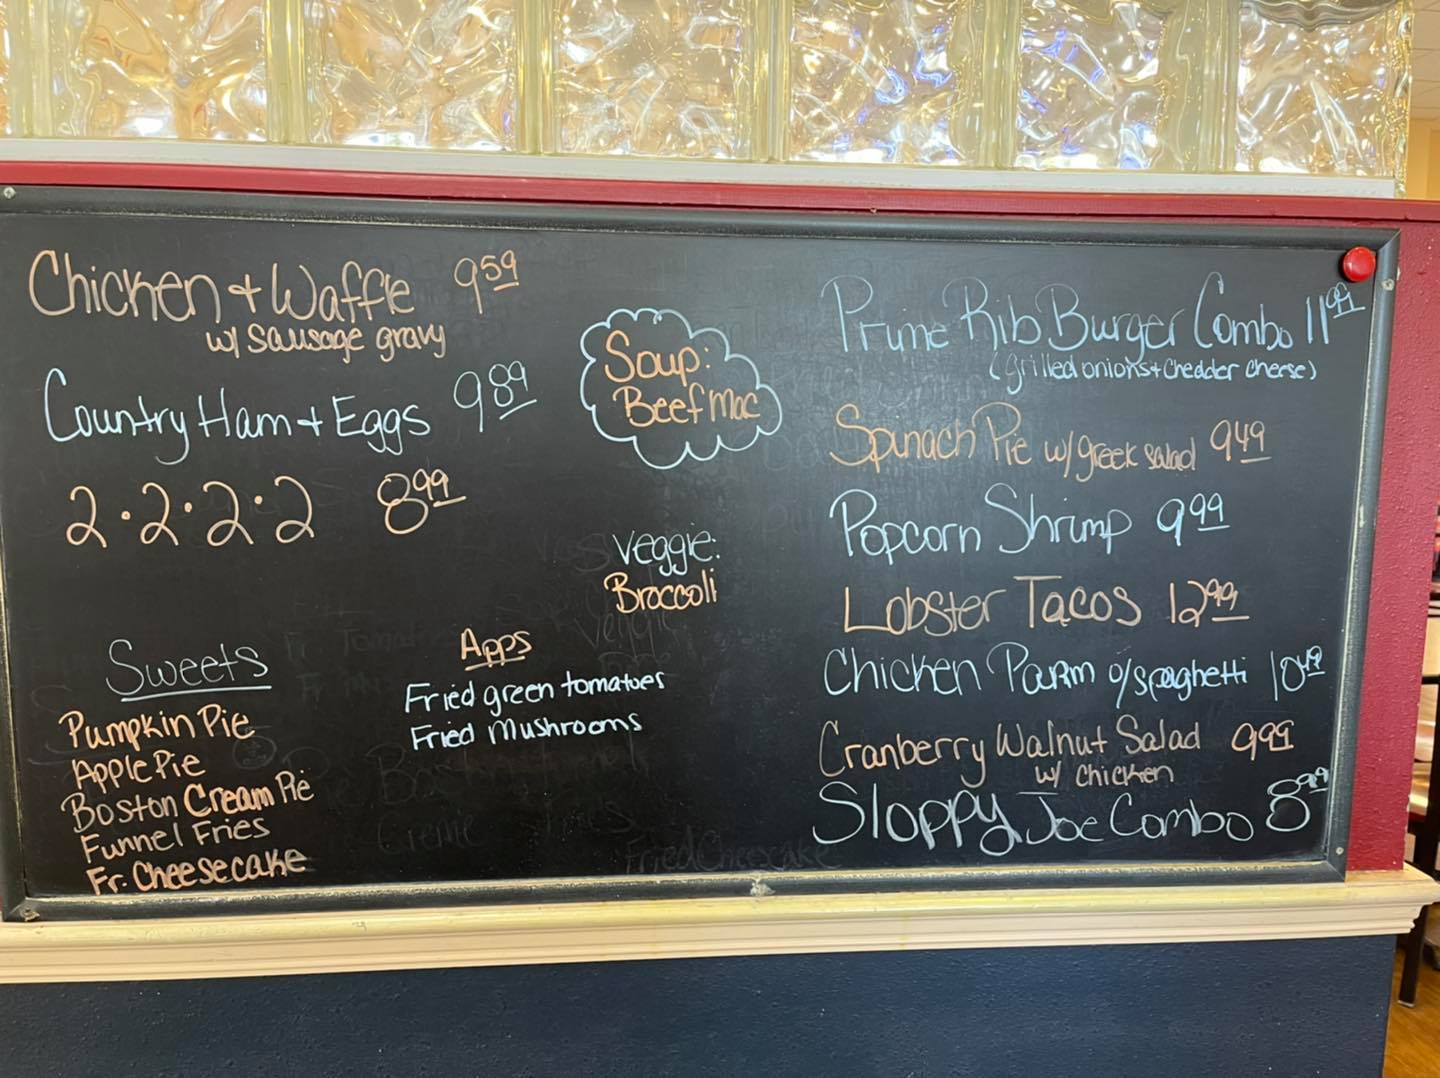 Chicken + Waffle 9.59
w/ sausage gravy
Country Ham + Eggs 9.89
2.2.2.2 8.99
Soup:
Beef Mac
Veggie:
Broccoli
Sweets
Pumpkin Pie
Apple Pie
Boston Cream Pie
Funnel Fries
Fr. Cheesecake
Apps
Fried green tomatoes
Fried Mushrooms
Prime Rib Burger Combo 11.99
(Grilled onions + Chedder cheese)
Spinach Pie w/ greek salad 9.49
Popcorn Shrimp 9.99
Lobster Tacos 12.99
Chicken Parm o/spaghetti 10.49
Cranberry Walnut Salad 9.99
w/ Chicken
Sloppy Joe Combo 8.99